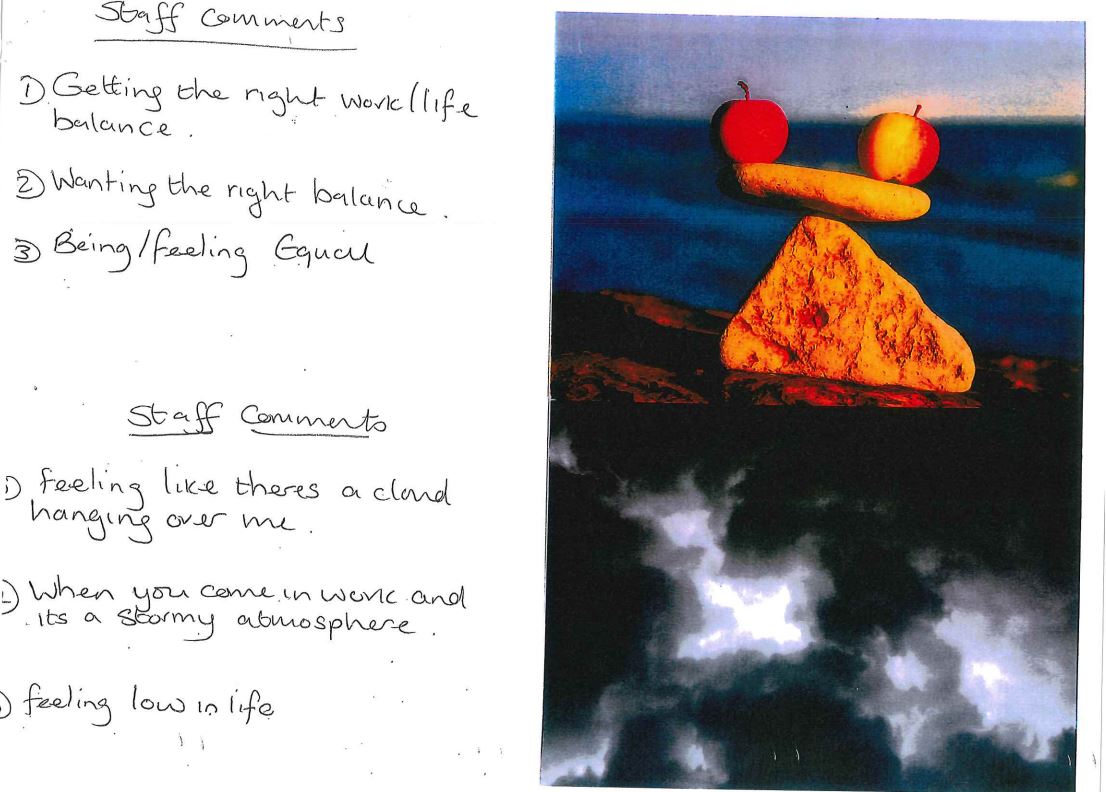 Staff Comments
1) Getting the right work/life
balance.
2) Wanting the right balance.
3) Being/feeling Equal
Staff Comments
1) feeling like theres a cloud
hanging over me.
2) When you come in work and
its a stormy atmosphere.
) feeling low in life